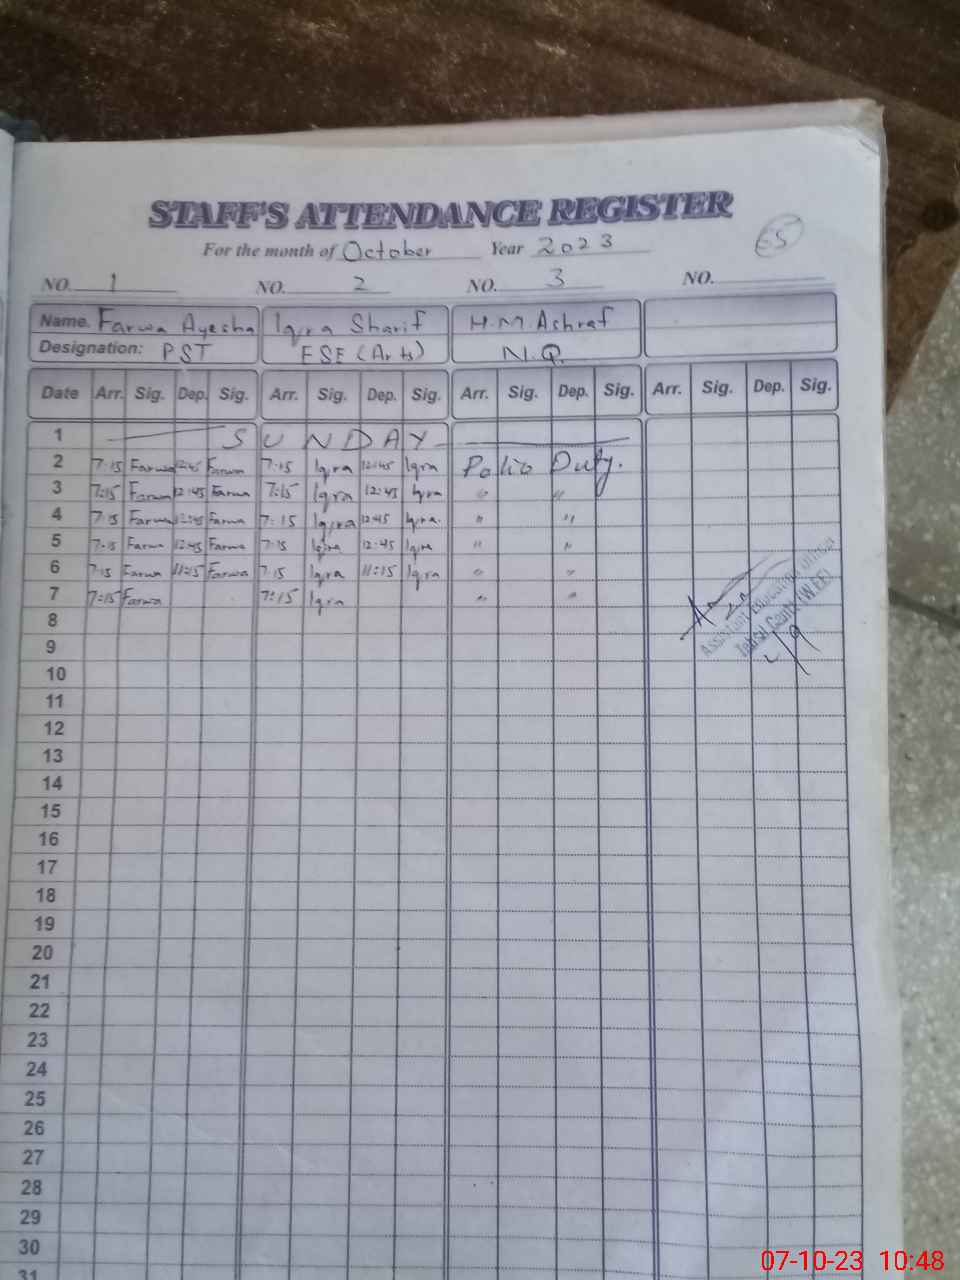 STAFF'S ATTENDANCE REGISTER
For the month of October Year 2023
55
NO. 1 NO. 2 NO. 3 NO.
Name. Farwa Ayesha Iqra Sharif H.M.Ashraf
Designation: PST ESE (Arts) N.Q.
Date Arr. Sig. Dep. Sig. Arr. Sig. Dep. Sig. Arr. Sig. Dep. Sig. Arr. Sig. Dep. Sig.
1 SUNDAY
2 7:15 Farwa 12:45 Farwa 7:15 Iqra 12:45 Iqra Polio Duty.
3 7:15 Farwa 12:45 Farwa 7:15 Iqra 12:45 Iqra " "
4 7:15 Farwa 12:45 Farwa 7:15 Iqra 12:45 Iqra " "
5 7:15 Farwa 12:45 Farwa 7:15 Iqra 12:45 Iqra " "
6 7:15 Farwa 11:15 Farwa 7:15 Iqra 11:15 Iqra " "
7 7:15 Farwa 7:15 Iqra " "
Assistant Education Officer
8
9
10
11
12
13
14
15
16
17
18
19
20
21
22
23
24
25
26
27
28
29
30
31
07-10-23 10:48